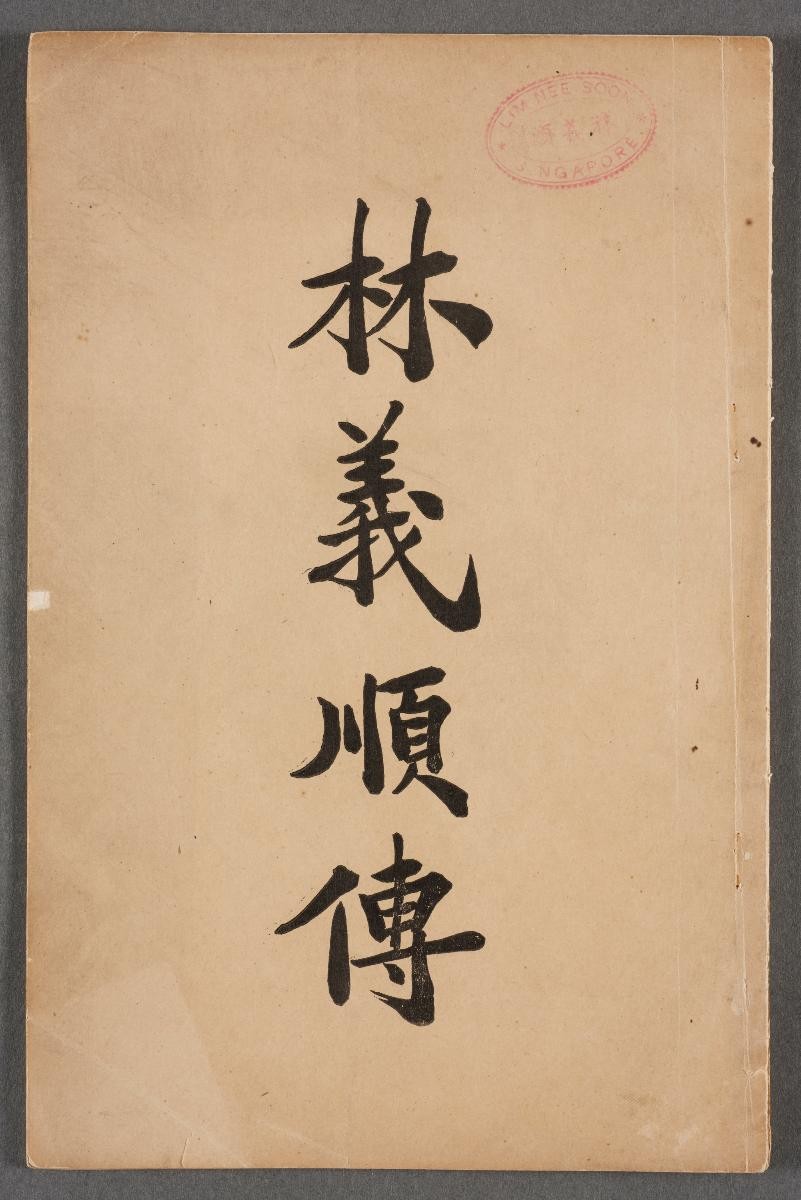 LIM NEE SOON
林義順
SINGAPORE
林義順傳